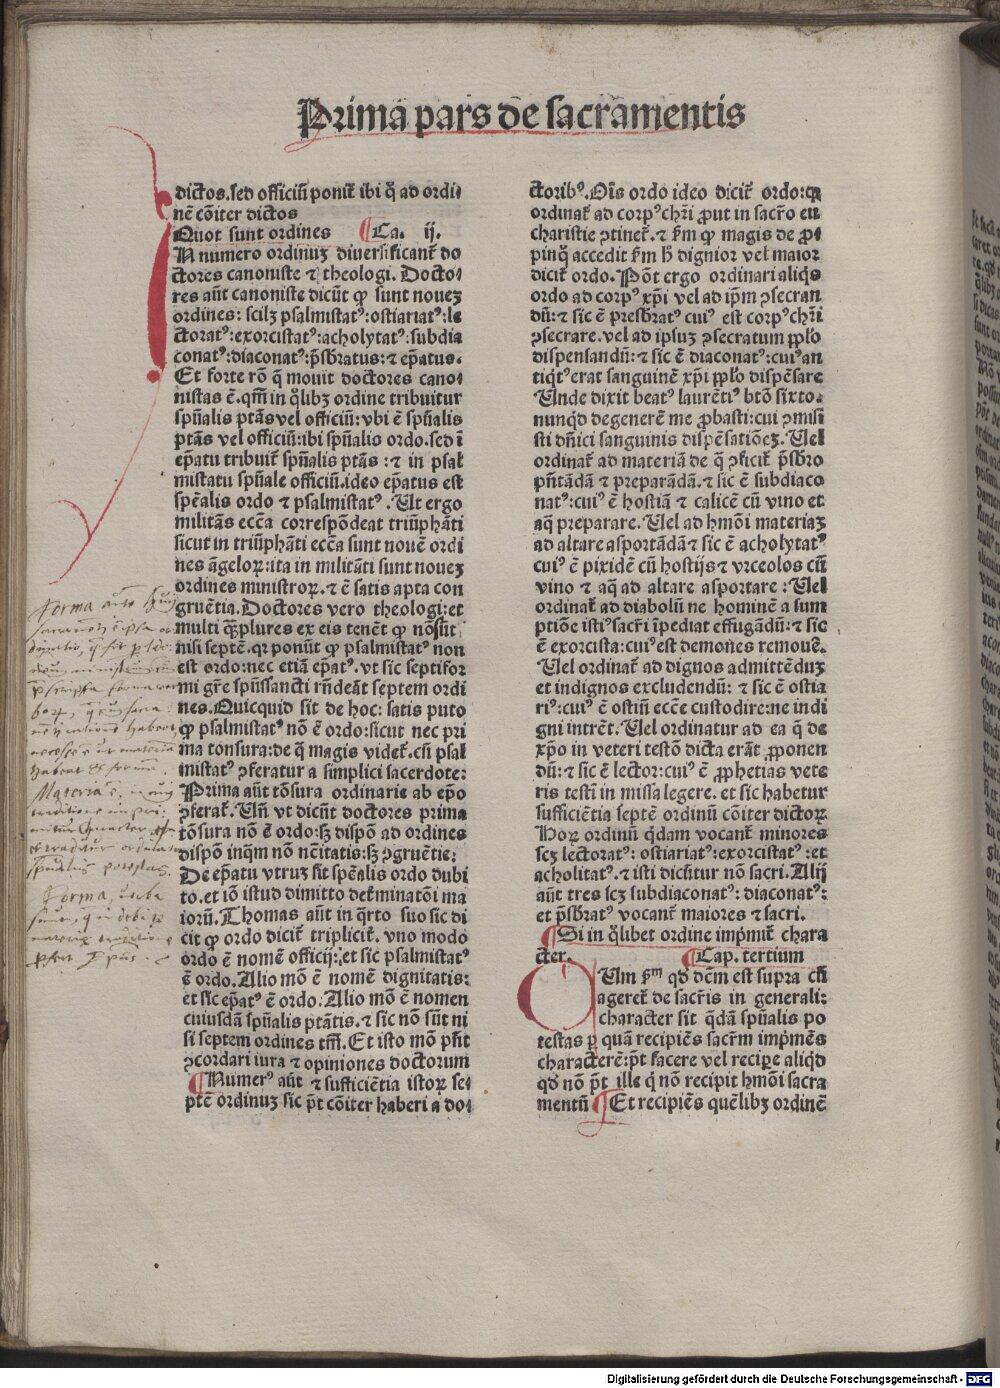 Prima pars de sacramentis
dictos.sed officiū ponit̄ ibi q̄ ad ordi⸗
nē cōiter dictos
Quot sunt ordines ¶Ca. ij.
IN numero ordinuʒ diuersificant̄ do
ctores canoniste ⁊ theologi. Docto⸗
res aūt canoniste dicūt ꝙ sunt noueʒ
ordines: scilʒ psalmistatꝰ:ostiariatꝰ:le
ctoratꝰ:exorcistatꝰ:acholytatꝰ:subdia
conatꝰ:diaconatꝰ:p̄sbratus:⁊ ep̄atus.
Et forte rō q̄ mouit doctores cano⸗
nistas ē.qm̄ in q̄libʒ ordine tribuitur
spūalis ptās vel officiū:vbi ē spūalis
ptās vel officiū:ibi spūalis ordo.sed ī
ep̄atu tribuit̄ spūalis ptās :⁊ in psal
mistatu spūale officiū.ideo ep̄atus est
spēalis ordo ⁊ psalmistatꝰ. Ut ergo
militās ecc̄a correspōdeat triūphāti
sicut in triūphāti ecc̄a sunt nouē ordi
nes āgeloꝝ:ita in militāti sunt noueʒ
ordines ministroꝝ.⁊ ē satis apta con
gruētia.Doctores vero theologi:et
multi qʒplures ex eis tenēt ꝙ nō sūt
nisi septē.qꝛ ponūt ꝙ psalmistatꝰ non
est ordo:nec etiā ep̄atꝰ.vt sic septifor
mi gr̄e spūssancti rn̄deāt septem ordi
nes.Quicquid sit de hoc: satis puto
ꝙ psalmistatꝰ nō ē ordo:sicut nec pri
ma tonsura:de q̄ magis videt̄.cū psal
mistatꝰ ꝯferatur a simplici sacerdote:
Prima aūt tōsura ordinarie ab ep̄o
ꝯferat̄. Un̄ vt dicūt doctores prima
tōsura nō ē ordo:sʒ dispō ad ordines
dispō inq̄m nō nc̄itatis:sʒ ꝯgruētie:
De ep̄atu vtruʒ sit spēalis ordo dubi
to.et iō istud dimitto det̄minatōi ma
ioꝝ. Thomas aūt in q̄rto suo sic di
cit ꝙ ordo dicit̄ triplicit̄. vno modo
ordo ē nomē officij:et sic psalmistatꝰ
ē ordo.Alio mō ē nomē dignitatis:
et sic ep̄atꝰ ē ordo.Alio mō ē nomen
cuiusdā spūalis ptātis.⁊ sic nō sūt ni
si septem ordines tm̄.Et isto mō pn̄t
ꝯcordari iura ⁊ opiniones doctorum
¶Numerꝰ aūt ⁊ sufficiētia istoꝝ se⸗
ptē ordinuʒ sic p̄t cōiter haberi a do⸗
ctoribꝰ.Oīs ordo ideo dicit̄ ordo:qꝛ
ordinat̄ ad corpꝰ chr̄i ꝓut in sacr̄o eu
charistie ꝯtinet̄.⁊ ẜm ꝙ magis de ꝓ⸗
pinq̄ accedit ẜm h̄ dignior vel maior
dicit̄ ordo. Pōt ergo ordinari aliq̇s
ordo ad corpꝰ xp̄i vel ad ip̄m ꝯsecran
dū:⁊ sic ē presbr̄atꝰ cuiꝰ est corpꝰ chr̄i
ꝯsecrare.vel ad ipsuʒ ꝯsecratum pplo
dispensandū:⁊ sic ē diaconatꝰ:cuiꝰ an
tiq̇tꝰ erat sanguinē xp̄i pplo dispēsare
Unde dixit beatꝰ laurētiꝰ btō sixto.
nunq̇d degenerē me ꝓbasti:cui ꝯmisi
sti dn̄ici sanguinis dispēsatiōeʒ. Uel
ordinat̄ ad materiā de q̄ ꝯficit̄ p̄sbr̄o
pn̄tādā ⁊ preparādā.⁊ sic ē subdiaco
natꝰ:cuiꝰ ē hostiā ⁊ calicē cū vino et
aq̄ preparare. Uel ad hmōi materiaʒ
ad altare asportādā ⁊ sic ē acholytatꝰ
cuiꝰ ē pixidē cū hostijs ⁊ vrceolos cū
vino ⁊ aq̄ ad altare asportare: Uel
ordinat̄ ad diabolū ne hominē a sum
ptiōe istiꝰ sacr̄i īpediat effugādū:⁊ sic
ē exorcista:cuiꝰ est demones remouē.
Uel ordinat̄ ad dignos admittēduʒ
et indignos excludendū: ⁊ sic ē ostia
riꝰ:cuiꝰ ē ostiū ecc̄e custodire:ne indi
gni intrēt. Uel ordinatur ad ea q̄ de
xp̄o in veteri testō dicta erāt ꝓponen
dū:⁊ sic ē lector:cuiꝰ ē ꝓphetias vete
ris testi in missa legere. et sic habetur
sufficiētia septē ordinū cōiter dictoꝝ
Hoꝝ ordinū q̇dam vocant̄ minores
scʒ lectoratꝰ: ostiariatꝰ:exorcistatꝰ:et
acholitatꝰ.⁊ isti dicūtur nō sacri. Alij
aūt tres scʒ subdiaconatꝰ: diaconatꝰ:
et p̄sbr̄atꝰ vocant̄ maiores ⁊ sacri.
¶Si in q̄libet ordine imp̄mit̄ chara
cter. ¶Cap. tertium
CUm ẜm qd̄ dc̄m est supra cū
ageret̄ de sacr̄is in generali:
character sit q̄dā spūalis po
testas ꝑ quā recipiēs sacr̄m imp̄mēs
characterē:p̄t facere vel recipe aliq̇d
qd̄ nō p̄t ille q̇ nō recipit hmōi sacra
mentū ¶Et recipiēs quēlibʒ ordinē
Digitalisierung gefördert durch die Deutsche Forschungsgemeinschaft - DFG